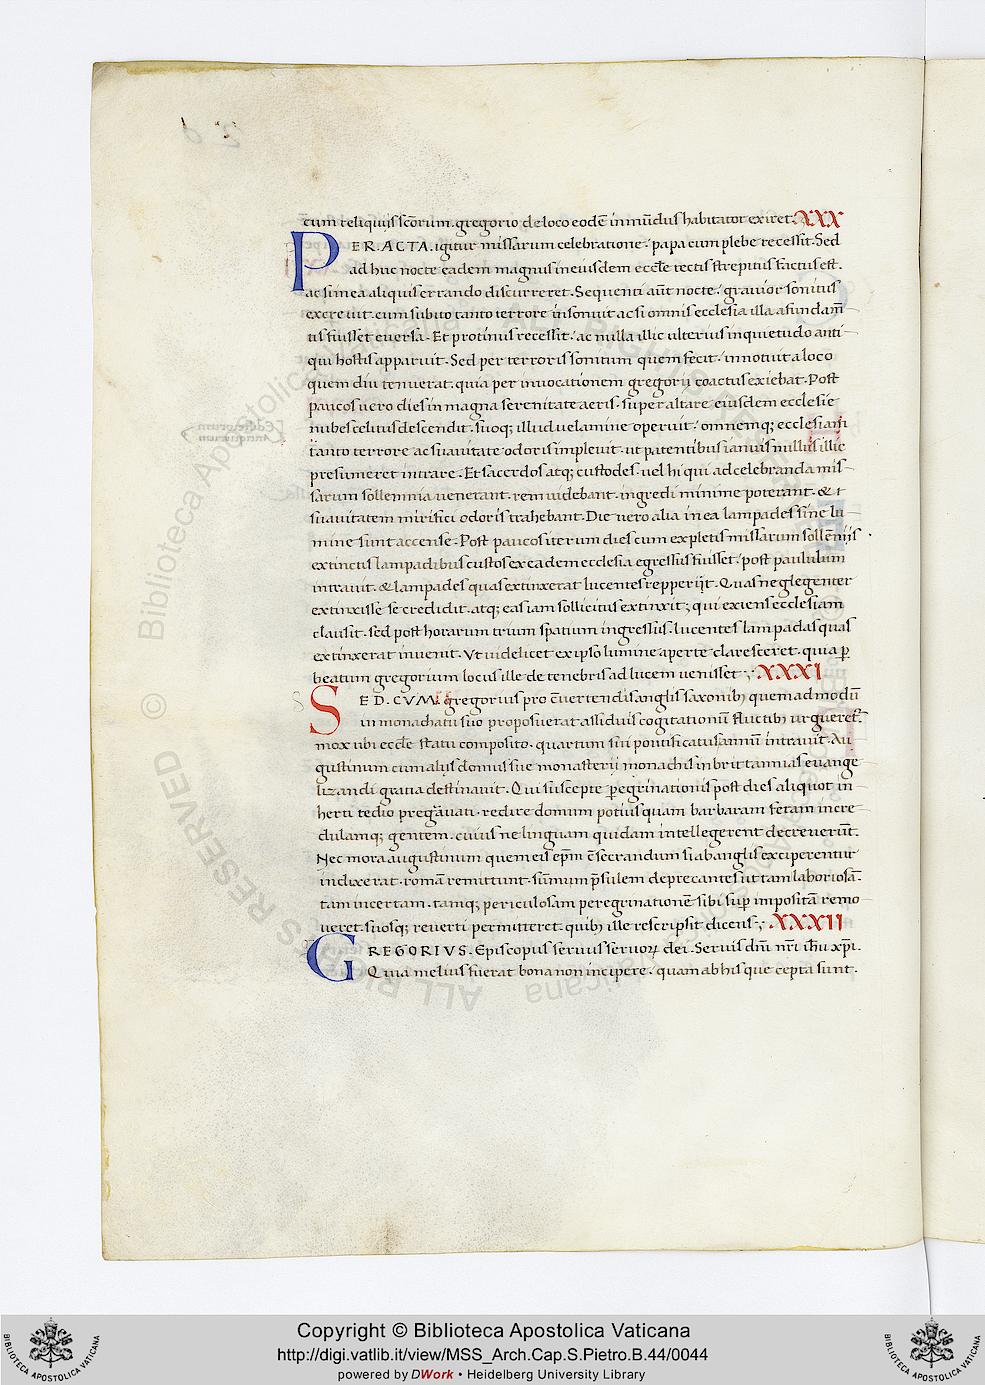 cum reliquijs sc̄orum. gregorio de loco eodē inmūdus habitator exiret. XXX
PERACTA. igitur missarum celebratione. papa cum plebe recessit. Sed
ad huc nocte eadem magnus in eiusdem eccl̄e tectis strepitus factus est.
ac si in ea aliquis errando discurreret. Sequenti aūt nocte. grauior sonitus
excreuit. cum subito tanto terrore insonuit ac si omnis ecclesia illa a fundam̄
tis fuisset euersa. Et protinus recessit. ac nulla illic ulterius inquietudo anti
qui hostis apparuit. Sed per terroris sonitum quem fecit. innotuit a loco
quem diu tenuerat. quia per inuocationem gregorij coactus exiebat. Post
paucos uero dies in magna serenitate aeris. super altare eiusdem ecclesie
nubes celitus descendit. suoq; illud uelamine operuit. omnemq; ecclesiam
tanto terrore ac suauitate odoris impleuit. ut patentibus ianuis nullus illic
presumeret intrare. Et sacerdos atq; custodes. uel hi qui ad celebranda mis
sarum sollemnia uenerant. rem uidebant. ingredi minime poterant. &
suauitatem mirifici odoris trahebant. Die uero alia in ea lampades sine lu
mine sunt accense. Post paucos iterum dies cum expletis missarum sollēniis
extinctis lampadibus custos ex eadem ecclesia egressus fuisset. post paululum
intrauit. & lampades quas extinxerat lucentes repperijt. Quas neglegenter
extinxisse se credidit. atq; eas iam sollicitus extinxit; qui exiens ecclesiam
clausit. sed post horarum trium spatium ingressus. lucentes lampadas quas
extinxerat inuenit. Vt uidelicet ex ipso lumine aperte claresceret. quia p̄
beatum gregorium locus ille de tenebris ad lucem uenisset; XXXI
SED. CVM. gregorius pro c̄uertendis anglis saxonib; quemadmodū
in monachatu suo proposuerat assiduis cogitationū fluctib; urgueret.
mox ubi eccl̄e statu composito. quartum sui pontificatus annū intrauit. Au
gustinum cum alijs domus sue monasterij monachis in brittannias euange
lizandi gratia destinauit. Qui suscepte p̄egrinationis post dies aliquot in
herti tedio pregrauati. redire domum potius quam barbaram feram incre
dulamq; gentem. cuius ne linguam quidam intellegerent decreuerūt.
Nec mora augustinum quem eis ep̄m c̄secrandum si ab anglis exciperentur
indixerat. romā remittunt. sūmum p̄sulem deprecantes ut tam laboriosā.
tam incertam. tamq; periculosam peregrinationē sibi sup̄ impositā remo
ueret. suosq; reuerti permitteret. quib; ille rescripsit dicens; XXXII
GREGORIVS. Episcopus seruus seruoꝝ dei. Seruis dn̄i nr̄i ih̄u xp̄i.
Quia melius fuerat bona non incipere. quam ab his que cepta sunt.
Copyright © Biblioteca Apostolica Vaticana
http://digi.vatlib.it/view/MSS_Arch.Cap.S.Pietro.B.44/0044
powered by DWork • Heidelberg University Library